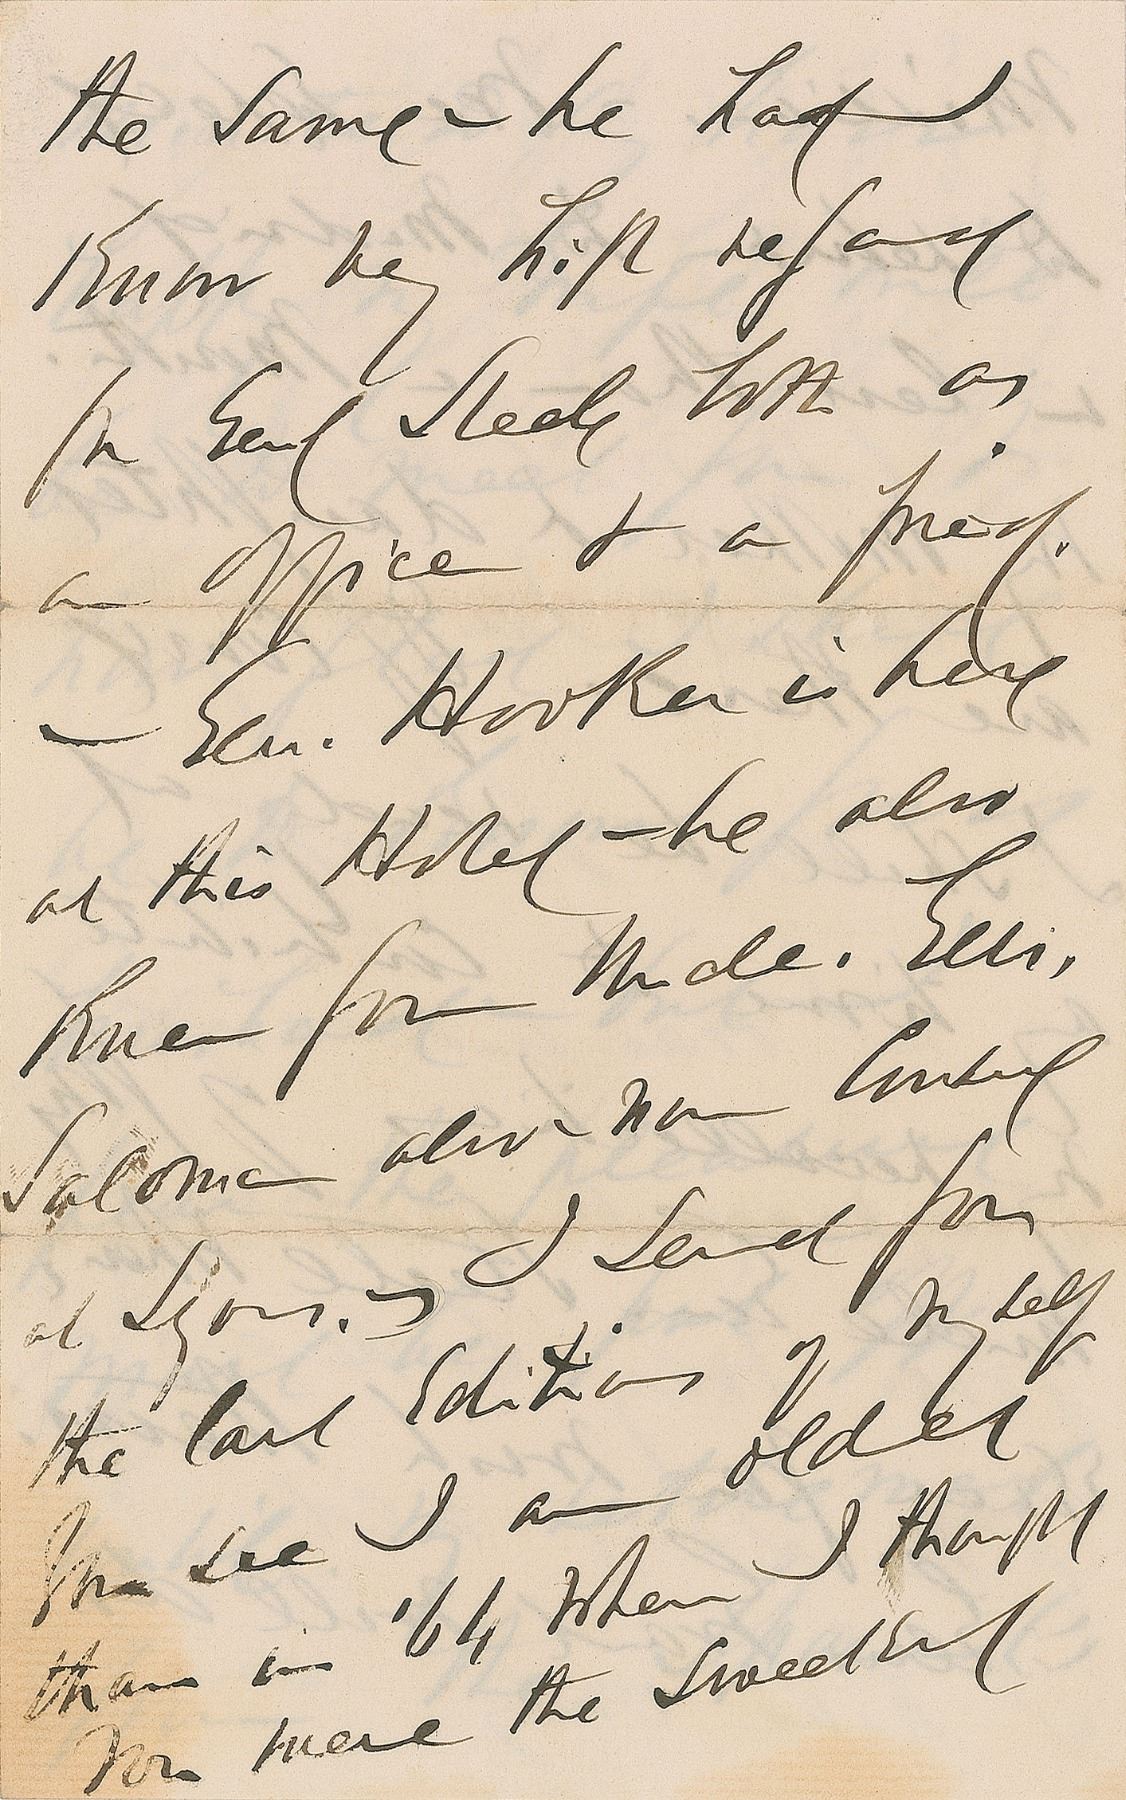 the same – he had
Know my high regard
for Genl Steele both as
an officer & a friend.
– Gen. Hooker is here
at this Hotel – he also
Knew your Uncle. Eli,
Saloma also – now Consul
at Lyons. – I send you
the last Edition of myself
You see I am older
than in '64 when I thought
You were the sweetest